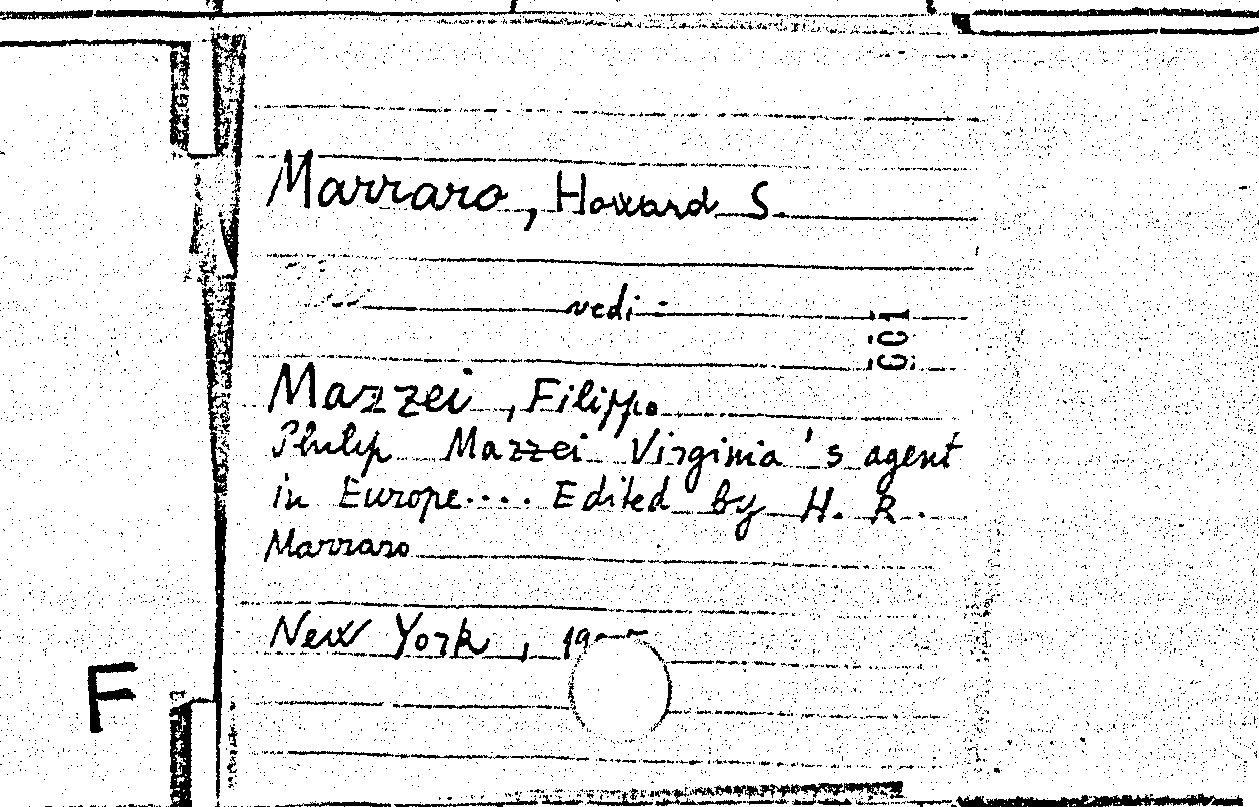 Marraro, Howard S.
vedi:
001
Mazzei, Filippo
Philip Mazzei Virginia's agent
in Europe.... Edited by H. R.
Marraro
New York,
F